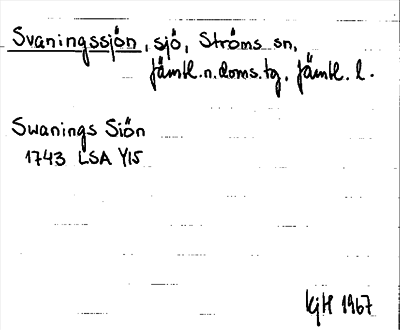 Svaningssjön, sjö, Ströms sn,
Jämtl. n. doms. tg, Jämtl. l.
Swanings Siön
1743 LSA Y15
KjH 1967